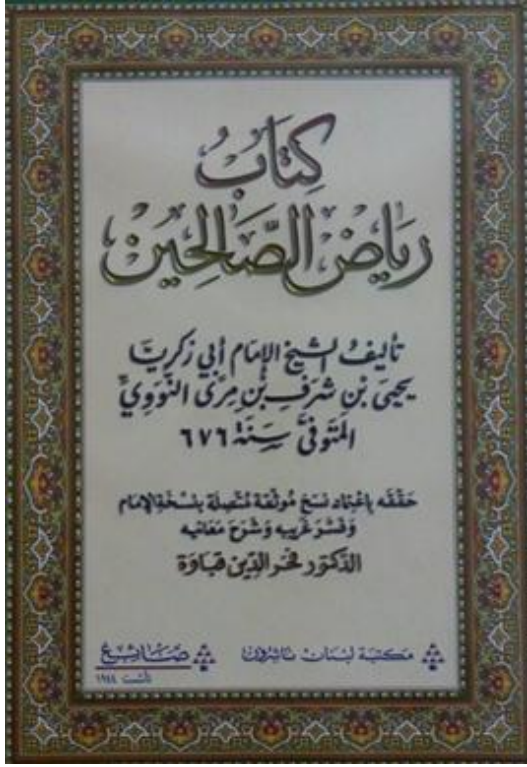 كِتَابُ
رِيَاضِ الصَّالِحِين
تأليفُ الشيخ الإمَام أبي زكريّا
يحيى بن شرَفِ بنُ مِرَى النَّوَوِيِّ
المتَوفَّى سَنَة ٦٧٦
حَقّقه باعتِماد نسَخ مُوثّقة مُتّصِلة بنسخَةِ الإمام
وَفسّرَ غريبه وَشرَح مَعَانيه
الدّكتور فخر الدّين قباوَة
مكتبة لبنان ناشرون
صَايِغ
تأسّست ١٩٤٤